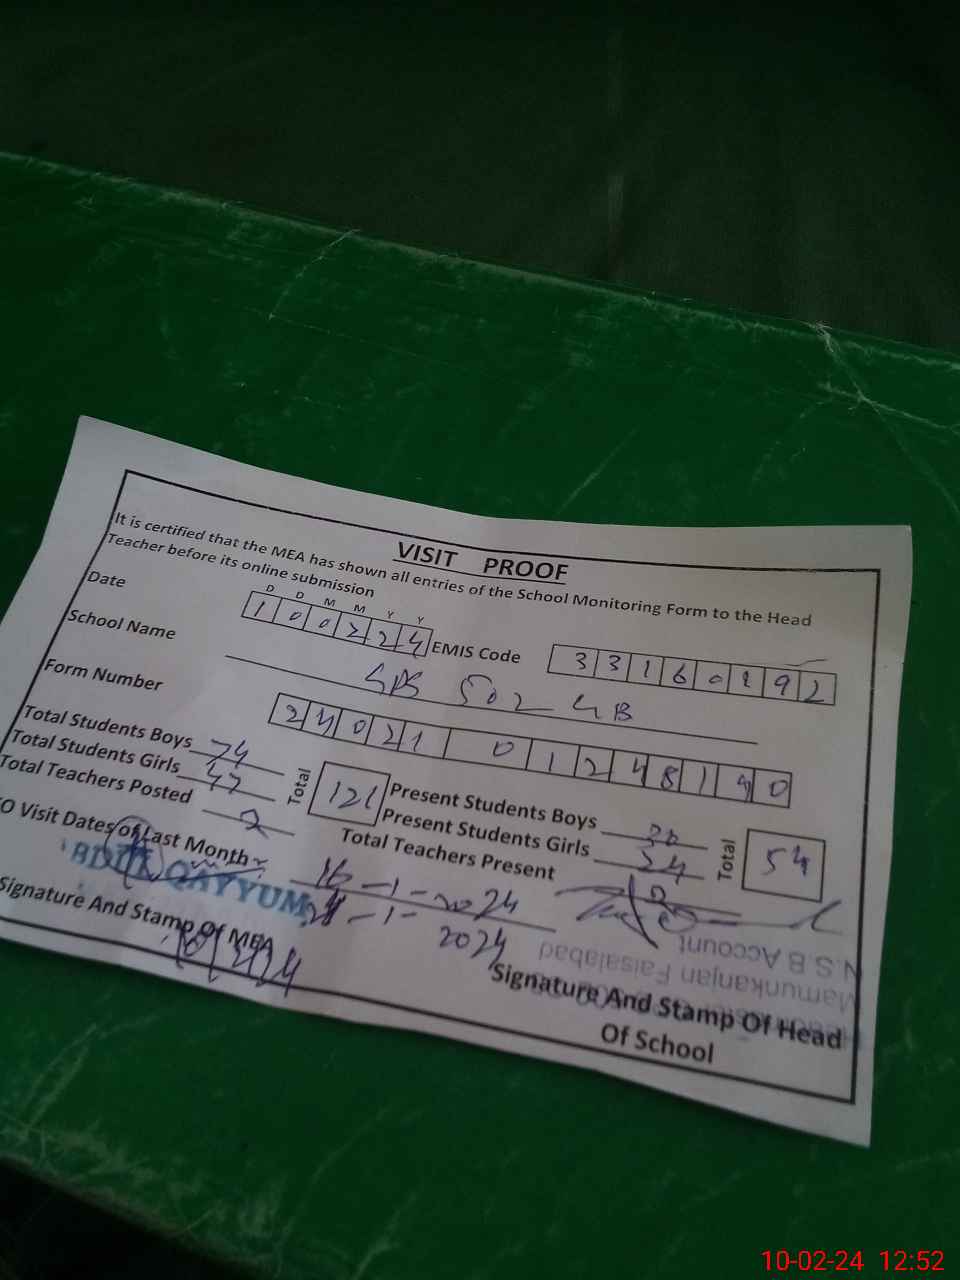 VISIT PROOF
It is certified that the MEA has shown all entries of the School Monitoring Form to the Head
Teacher before its online submission
D D M M Y Y
Date 1 0 0 2 2 4 EMIS Code 3 3 1 6 0 1 9 2
School Name GPS 502 GB
Form Number 2 4 0 2 1 0 1 2 4 8 1 9 0
Total Students Boys 74
Total Students Girls 47
Total 121
Total Teachers Posted 2
Present Students Boys 20
Present Students Girls 34
Total 54
Total Teachers Present
O Visit Dates of Last Month: 16-1-2024
-1-2024
QAYYUM
Signature And Stamp Of MEA
N.S.B Account
Mamunkanjan Faisalabad
Signature And Stamp Of Head
Of School
10-02-24 12:52